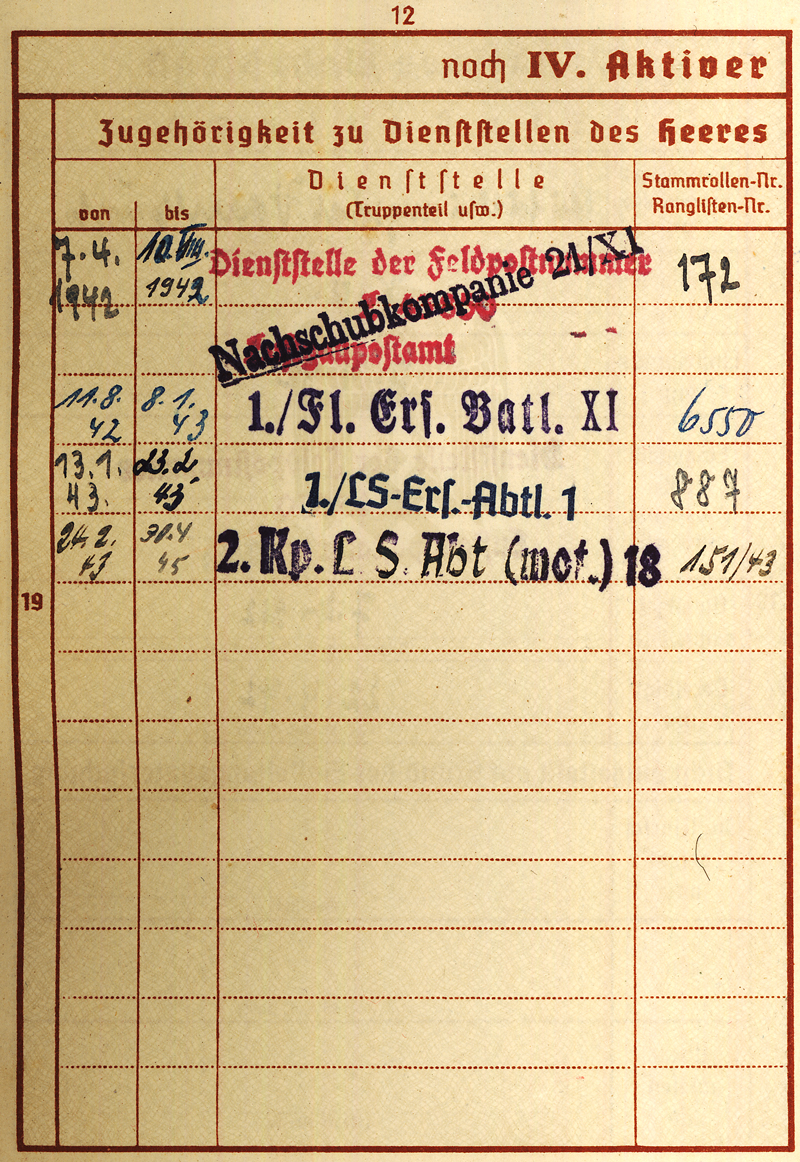 12
noch IV. Aktiver
Zugehörigkeit zu Dienststellen des Heeres
von
bis
Dienststelle
(Truppenteil usw.)
Stammrollen-Nr.
Ranglisten-Nr.
7.4.
1942
10.VIII.
1942
Dienststelle der Feldpostnummer
Nachschubkompanie 21/XI
172
11.8.
42
8.1.
43
1./Fl. Ers. Batl. XI
6550
13.1.
43.
23.2
43
1./LS-Ers.-Abtl. 1
887
24.2.
43
30.4
45
2. Kp. L S. Abt (mot.) 18
151/43
19